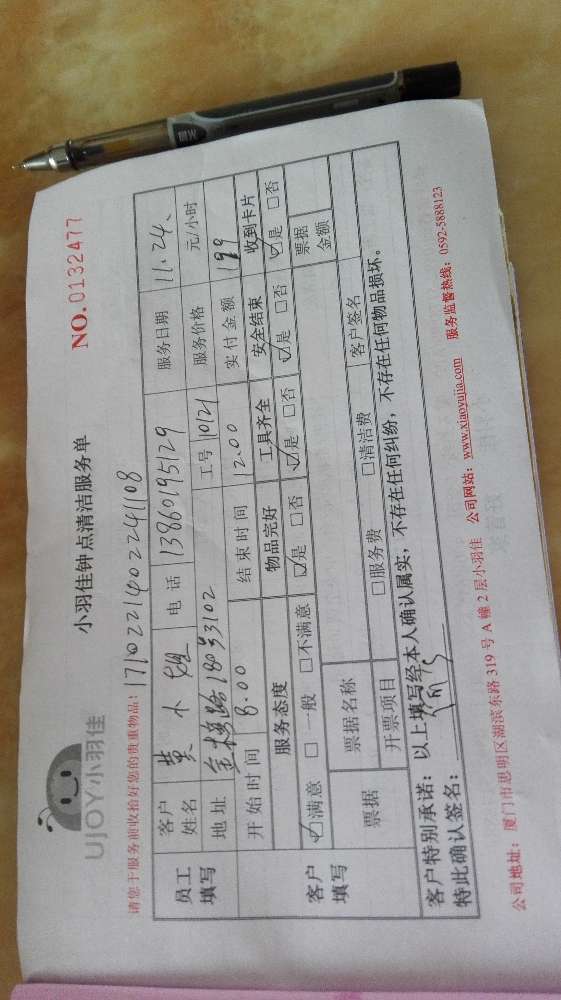 UJOY小羽佳
小羽佳钟点清洁服务单
NO.0132477
请您于服务前收拾好您的贵重物品!
1710221402241108
员工填写 客户姓名 黄小姐 电话 13860195129 服务日期 11.24、
地址 18号3102 工号 10121 服务价格 元/小时
开始时间 8.00 结束时间 12.00 实付金额 199
客户填写 服务态度 物品完好 工具齐全 安全结束 收到卡片
☑满意 □一般 □不满意 ☑是 □否 ☑是 □否 ☑是 □否 ☑是 □否
票据 票据名称 客户签名 票据金额
开票项目 □服务费 □清洁费
客户特别承诺:以上填写经本人确认属实,不存在任何纠纷,不存在任何物品损坏。
特此确认签名:
公司地址:厦门市思明区湖滨东路319号A幢2层小羽佳 公司网站:www.xiaoyujia.com 服务监督热线:0592-5888123